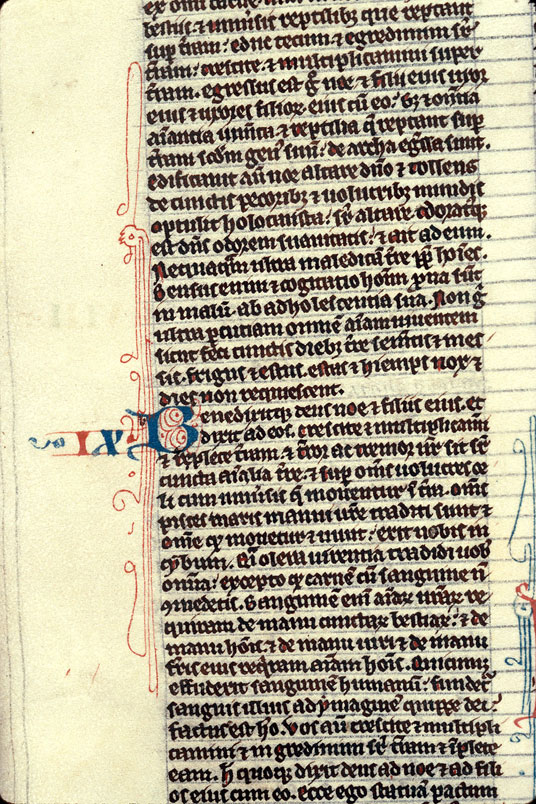 ex om̄i carne
bestiis ⁊ uniuersis reptilibꝫ que reptant
sup̄ t̄ram. educ tecum ⁊ egredimini sr̄
t̄ram. crescite ⁊ multiplicamini super
t̄ram. egressus est g̊ noe ⁊ filii eius uxor
eius ⁊ uxores filiorꝫ eius cū eo. sꝫ ⁊ om̄ia
aīantia iumēta ⁊ reptilia q̄ reptant sup̄
t̄ram scd̄m gen' suū. de archa eg̃ssa sunt.
edificauit aū noe altare dn̄o ⁊ tollens
de cunctis pecoribꝫ ⁊ uolucribꝫ mundis
optulit holocausta. sr̄ altare odoratꝫ
est dn̄s odorem suauitatis. ⁊ ait ad eum.
Nequaq̄m ultra maledicā t̄re pp̄ hoīes.
Sensus enim ⁊ cogitatio hoīm prona sūt
in malū. ab adholescentia sua. Non g̊
ultra percutiam omnē aīam uiuentem
sicut feci cunctis diebꝫ t̄re sem̄tis ⁊ mes
sis. frigus ⁊ estus. estas ⁊ hiemps nox ⁊
dies non requiescent.
IX Benedixitqꝫ deus noe ⁊ filiis eius. et
dixit ad eos. crescite ⁊ multiplicamī
⁊ replete t̄ram. ⁊ t̄ror ac tremor ur̄ sit sr̄
cuncta aīalia t̄re. ⁊ sup̄ om̄s uolucres ce
li cum uniuersis q̄ mouentur s̄ t̄m. Om̄s
pisces maris manui ur̄e traditi sunt ⁊
om̄e qꝫ mouetur ⁊ uiuit. erit uobis in
cybum. q̄i olera uirentia tradidi uob
omīa. excepto qꝫ carnē cū sanguine n̄
ꝯmedetis. Sanguinē enī aīarꝫ ur̄arꝫ re
quiram de manu cunctarꝫ bestiarꝫ. ⁊ de
manu hoīs. ⁊ de manu uiri ⁊ de manu
fr̄is eius reqiram aīam hoīs. Quicumqꝫ
effuderit sanguinē humanū. fundet'
sanguis illius ad ymaginē quippe dei
factus est ho. Vos aū crescite ⁊ multipli
camini ⁊ ingredimini sr̄ t̄ram ⁊ īplete
eam. h̄ quoqꝫ dixit deus ad noe ⁊ ad fili
os eius cum eo. ecce ego statuā pactum